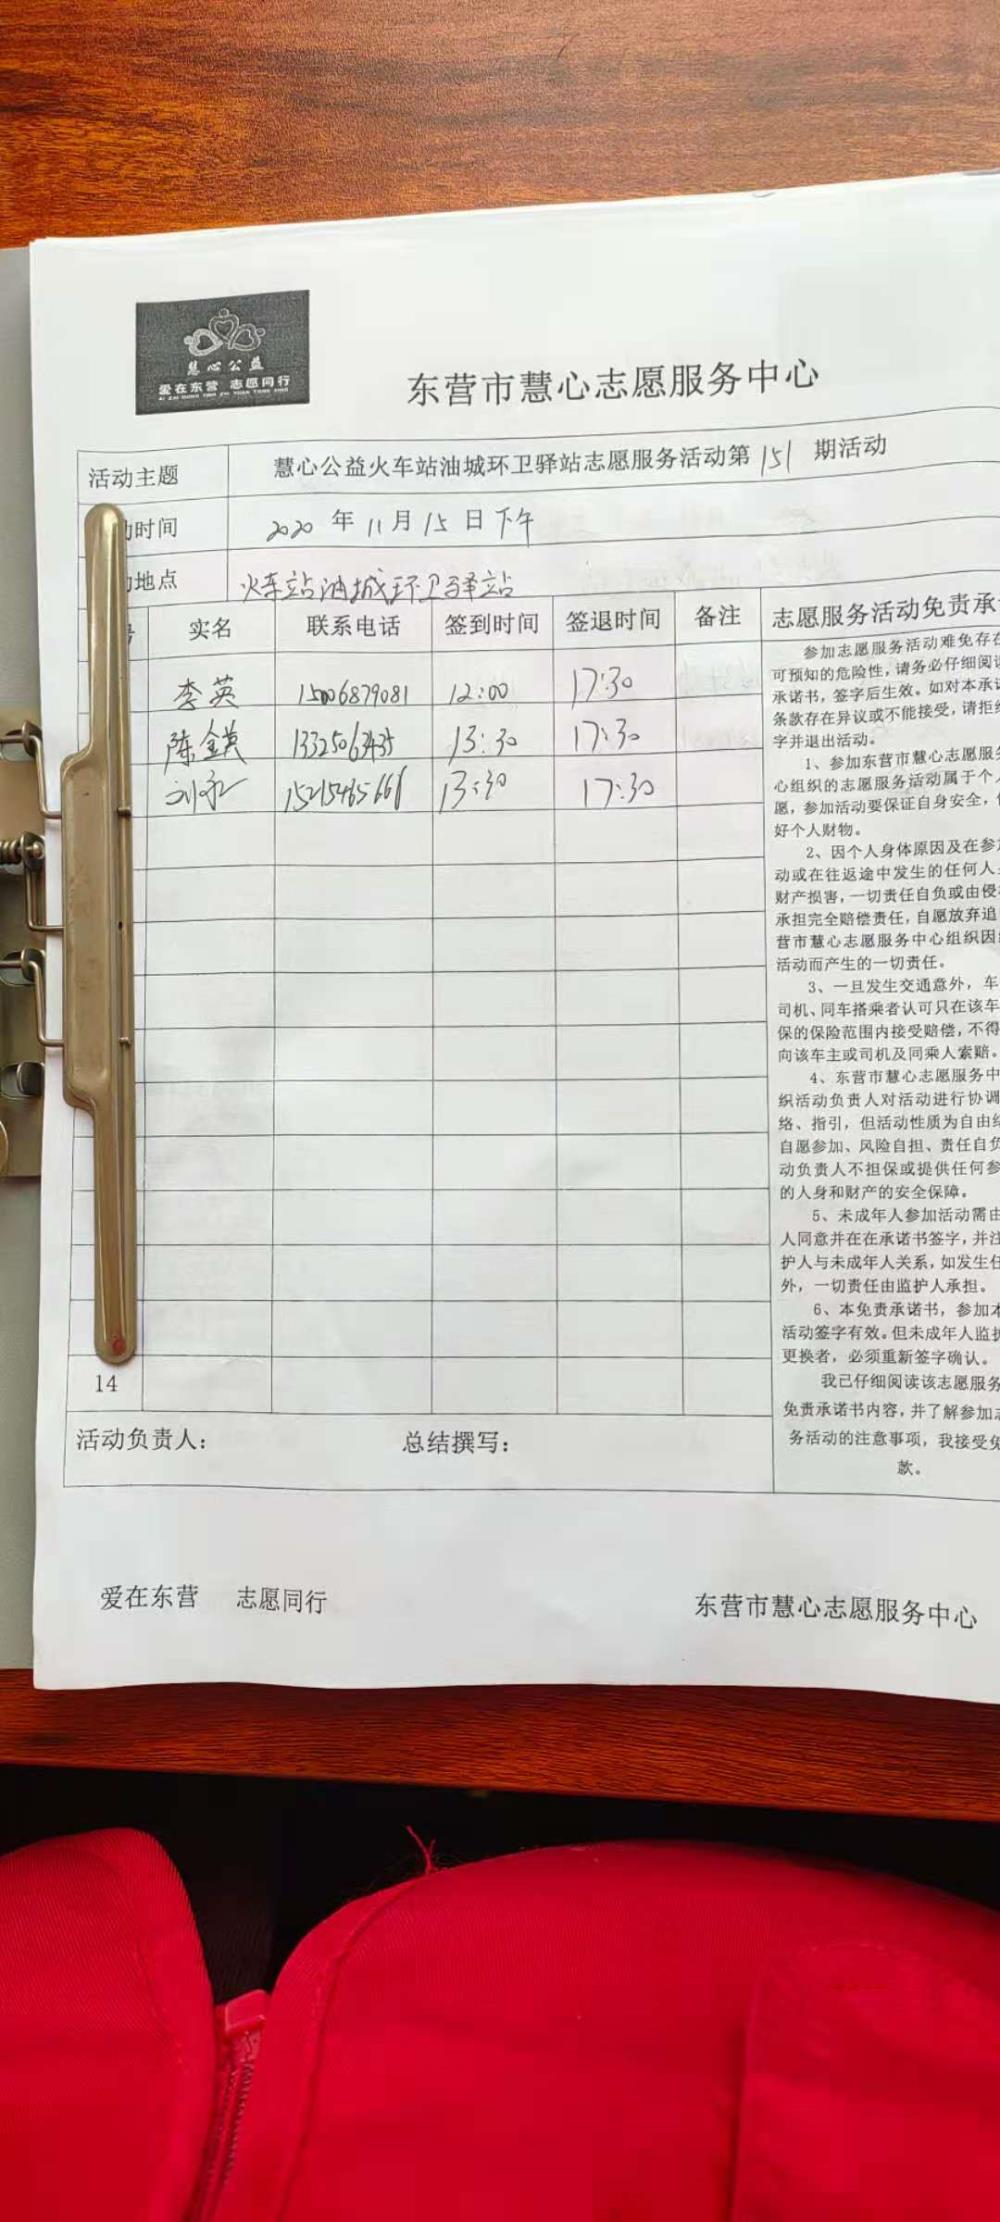 慧心公益
爱在东营 志愿同行
AI ZAI DONG YING ZHI YUAN TONG XING
东营市慧心志愿服务中心
活动主题 慧心公益火车站油城环卫驿站志愿服务活动第151期活动
动时间 2020年11月15日下午
地点 火车站油城环卫驿站
号 实名 联系电话 签到时间 签退时间 备注
李英 15006879081 12:00 17:30
陈 13:30 17:30
刘 13:30 17:30
14
活动负责人： 总结撰写：
志愿服务活动免责承
参加志愿服务活动难免存在
可预知的危险性，请务必仔细阅读
承诺书，签字后生效。如对本承诺
条款存在异议或不能接受，请拒绝
字并退出活动。
1、参加东营市慧心志愿服务
心组织的志愿服务活动属于个人
愿，参加活动要保证自身安全，
好个人财物。
2、因个人身体原因及在参加
动或在往返途中发生的任何人
财产损害，一切责任自负或由侵
承担完全赔偿责任，自愿放弃追
营市慧心志愿服务中心组织因
活动而产生的一切责任。
3、一旦发生交通意外，车
司机、同车搭乘者认可只在该车
保的保险范围内接受赔偿，不得
向该车主或司机及同乘人索赔。
4、东营市慧心志愿服务中
织活动负责人对活动进行协调
络、指引，但活动性质为自由结
自愿参加、风险自担、责任自负
动负责人不担保或提供任何参
的人身和财产的安全保障。
5、未成年人参加活动需由
人同意并在在承诺书签字，并注
护人与未成年人关系，如发生任
外，一切责任由监护人承担。
6、本免责承诺书，参加本
活动签字有效。但未成年人监护
更换者，必须重新签字确认。
我已仔细阅读该志愿服务
免责承诺书内容，并了解参加志
务活动的注意事项，我接受免
款。
爱在东营 志愿同行
东营市慧心志愿服务中心